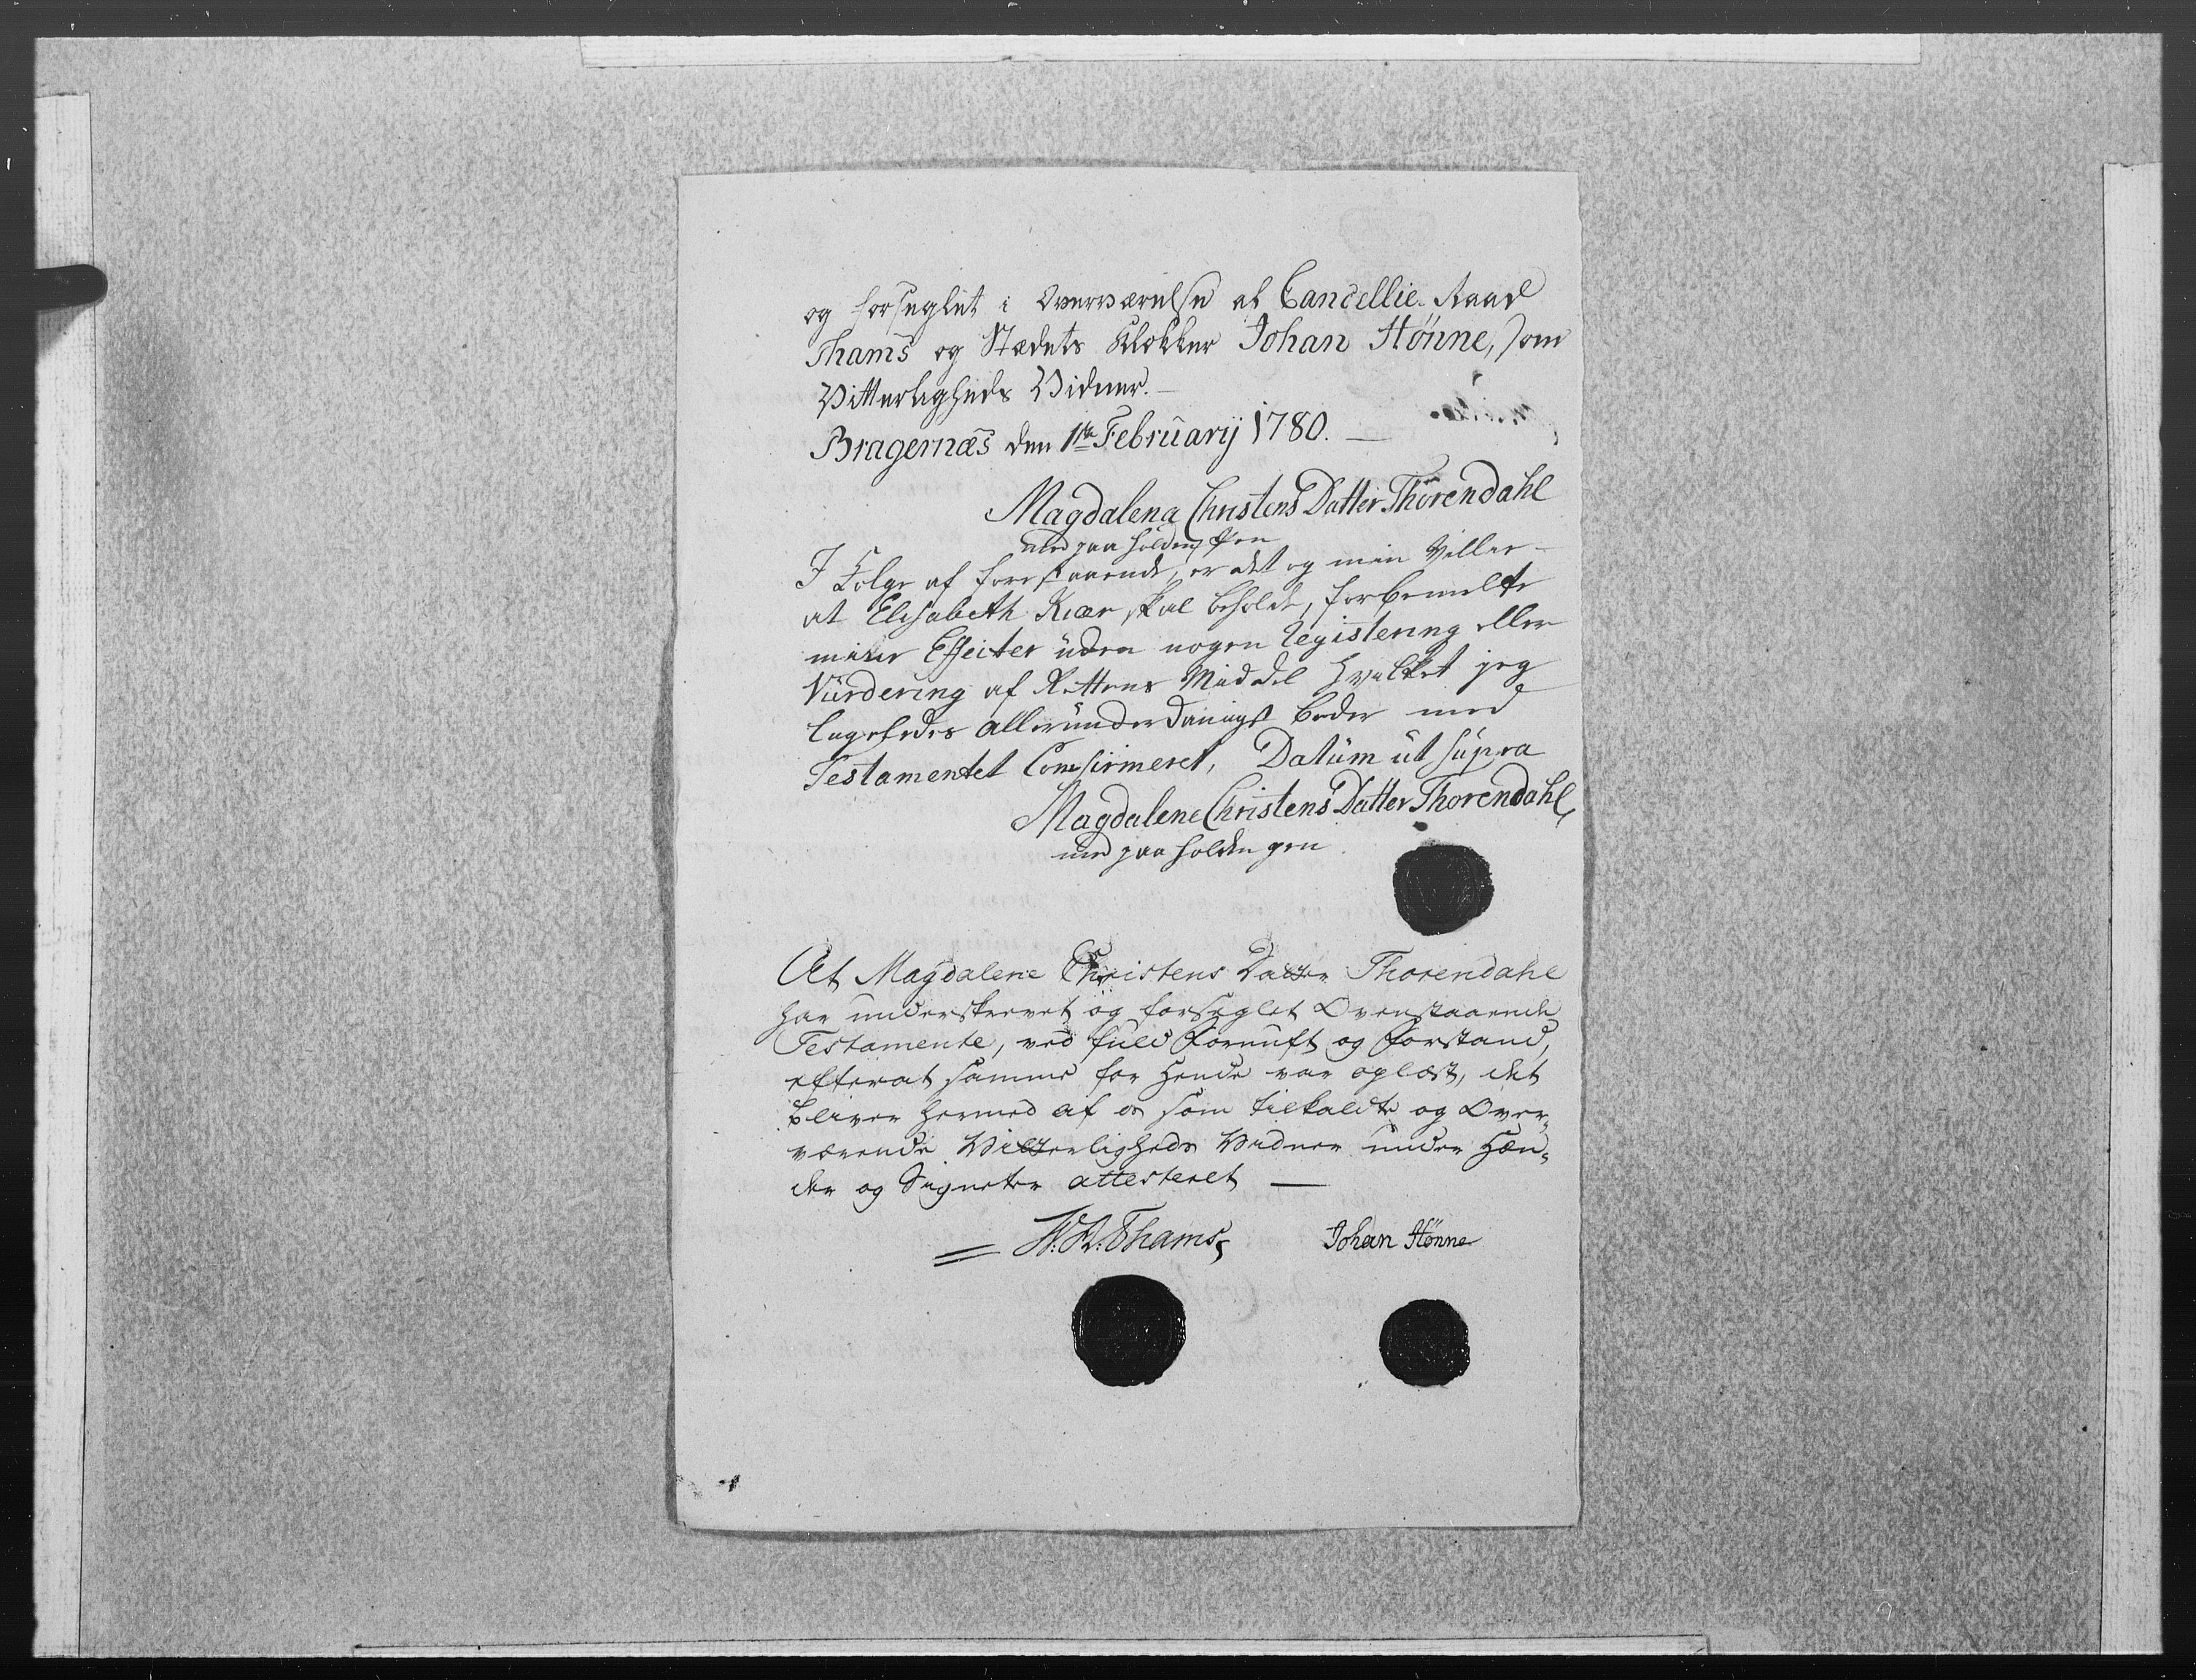 og forseglet i Overværelse af Cancellie-Raad
Thams og Stædets Klokker Johan Hönne, som
Vitterligheds Vidner.
Bragernæs den 1te February 1780.
Magdalena Christens Datter Thorendahl
med paa holden Pen
I Følge af forestaaende, er det og min Villie
at Elisabeth Kiær skal beholde, forbemelte
mine Effecter uden nogen Registering eller
Vurdering af Rettens Middel hvilket jeg
ligeledes allerunderdanigst beder med
Testamentet Confirmeret, Datum ut supra
Magdalene Christens Datter Thorendahl
med paa holden pen
At Magdalene Christens Datter Thorendahl
har underskrevet og forseglet Ovenstaaende
Testamente, ved fuld Fornuft og Forstand,
efterat samme for Hende var oplæst, det
bliver hermed af os som tilkaldte og Over-
værende Vitterligheds Vidner under Hæn-
der og Signeter attesteret
Johan Hönne